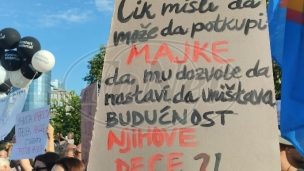 Čik misle da
može da potkupi
MAJKE
da mu dozvole da
nastavi da uništava
BUDUĆNOST
NJIHOVE
DECE?!